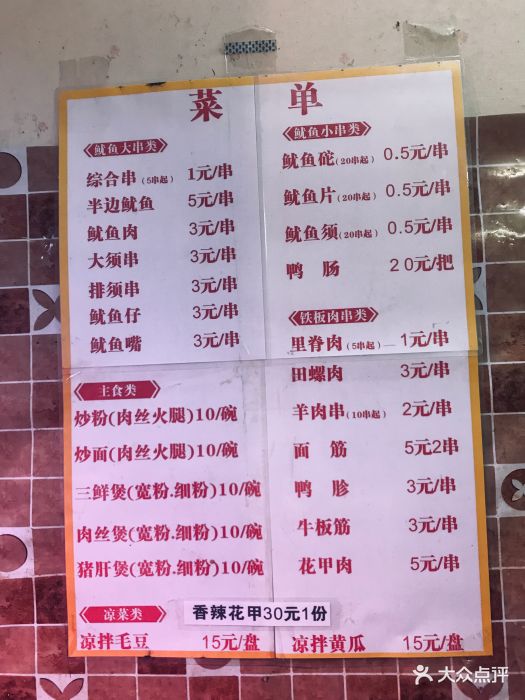 菜 单
《鱿鱼大串类》
综合串(5串起) 1元/串
半边鱿鱼 5元/串
鱿鱼肉 3元/串
大须串 3元/串
排须串 3元/串
鱿鱼仔 3元/串
鱿鱼嘴 3元/串
《主食类》
炒粉(肉丝火腿)10/碗
炒面(肉丝火腿)10/碗
三鲜煲(宽粉.细粉)10/碗
肉丝煲(宽粉.细粉)10/碗
猪肝煲(宽粉.细粉)10/碗
《鱿鱼小串类》
鱿鱼砣(20串起) 0.5元/串
鱿鱼片(20串起) 0.5元/串
鱿鱼须(20串起) 0.5元/串
鸭 肠 20元/把
《铁板肉串类》
里脊肉(5串起) 1元/串
田螺肉 3元/串
羊肉串(10串起) 2元/串
面 筋 5元2串
鸭 胗 3元/串
牛板筋 3元/串
花甲肉 5元/串
《凉菜类》
香辣花甲30元1份
凉拌毛豆 15元/盘
凉拌黄瓜 15元/盘
大众点评